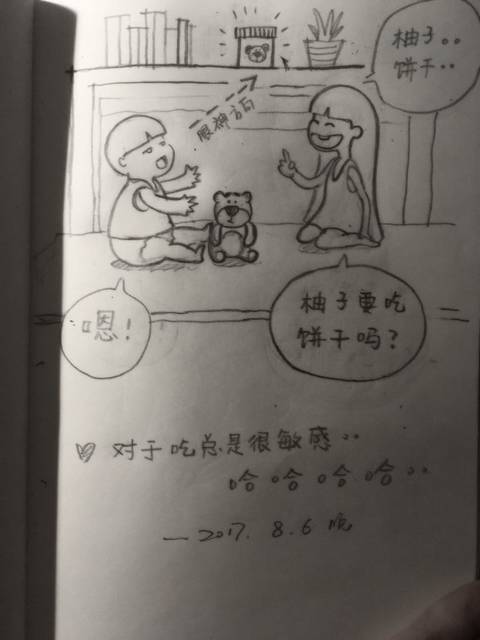 柚子。。
饼干..
眼神方向
柚子要吃
饼干吗?
嗯!
对于吃总是很敏感..
哈哈哈哈..
—2017.8.6 晚